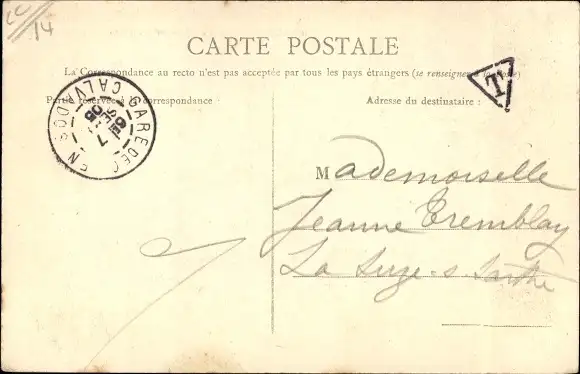 14
CARTE POSTALE
La Correspondance au recto n'est pas acceptée par tous les pays étrangers (se renseigner à la poste)
Partie réservée à la correspondance
Adresse du destinataire :
T
GARE DE CAEN
CALVADOS
7
05
Mademoiselle
Jeanne Tremblay
La Suze-s-Sarthe